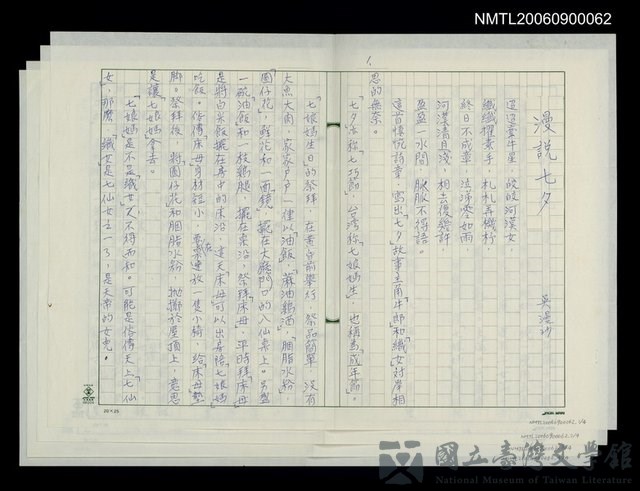 NMTL20060900062
1.
漫說七夕
吳漫沙
迢迢牽牛星，皎皎河漢女，
纖纖擢素手，札札弄機杼，
終日不成章，泣涕零如雨，
河漢清且淺，相去復幾許，
盈盈一水間，脈脈不得語。
這首情侃詩章，寫出「七夕」故事主角「牛郎」和「織女」对岸相
思的無奈。
「七夕」亦称「七巧節」，台灣称「七娘媽生」，也稱為「成年節」。
七娘媽生日的祭拜，在黃昏前舉行，祭品簡單，沒有
大魚大肉，家家戶戶一律以「油飯」、「蔴油鷄酒」，胭脂水粉、
圓仔花，鮮花和一面鏡，擺在大廳門口的八仙桌上。另盤
一碗油飯和一枝鷄腿，擺在床沿，祭拜「床母」，平時拜床母
是將白米飯擺在房中的床沿，這天「床母」可以出房陪「七娘媽」
吃飯。俗傳床母身材短小，素素還放一隻小椅，給床母墊
脚。祭拜後，將圓仔花和胭脂水粉，拋擲於屋頂上，意思
是讓七娘媽拿去。
「七娘媽」是不是「織女」又不得而知。可能是俗傳天上「七仙
女」，那麼，「織女」是七仙女之一了，是天帝的女兒。
國立臺灣文學館
National Museum of Taiwan Literature